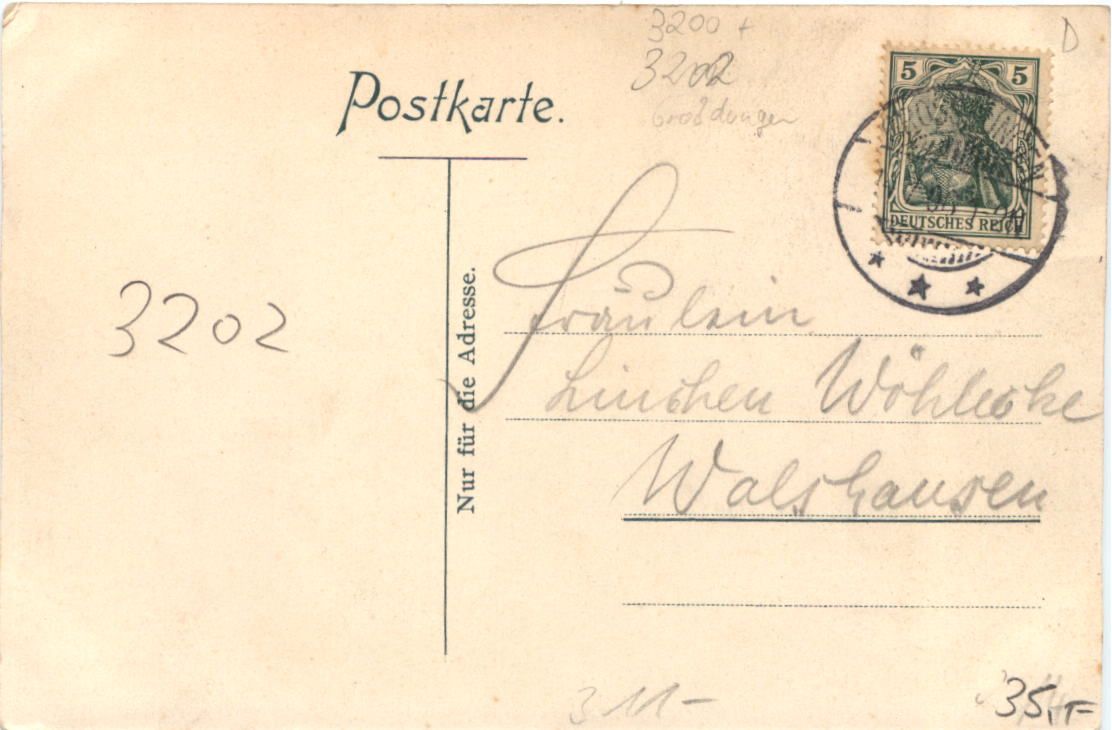 3200 +
3202
Großdüngen
D
Postkarte.
5 5
DEUTSCHES REICH
Nur für die Adresse.
3202
Fräulein
Linchen Wöhleke
Walshausen
3 11-
35,-